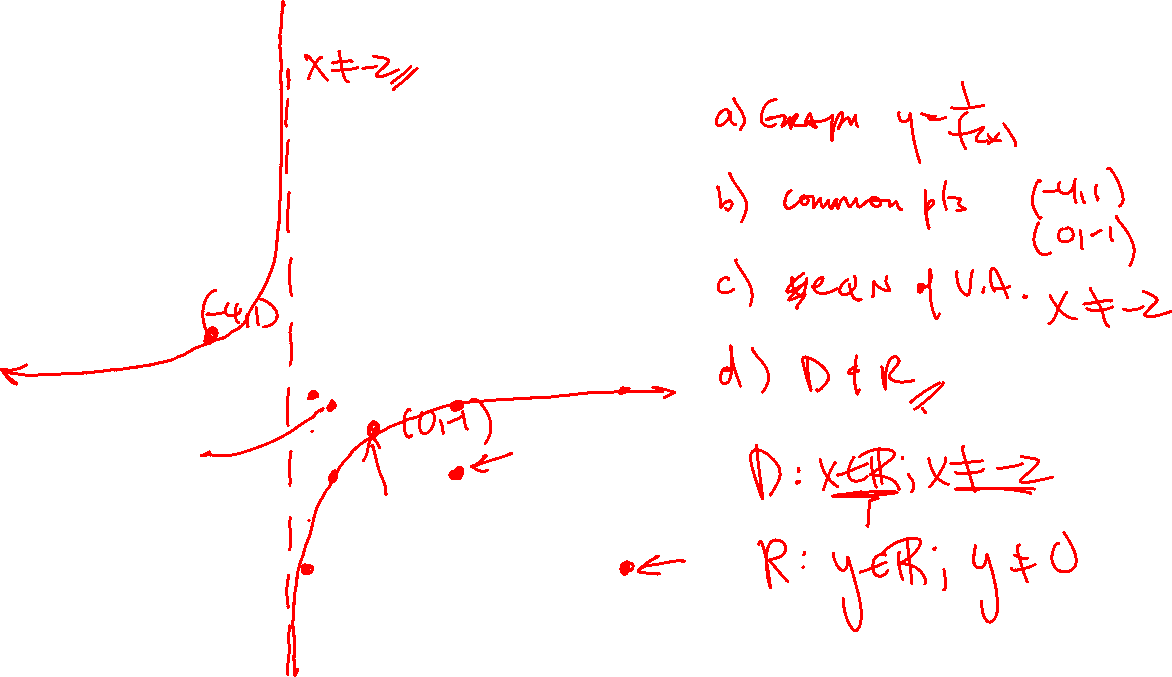 x ≠ -2
a) Graph y = 1/f(x)
b) common pts (-4,1)
(0,-1)
c) eqn of V.A. x ≠ -2
(-4,1)
d) D & R
(0,-1)
D: x∈ℝ; x ≠ -2
R: y∈ℝ; y ≠ 0